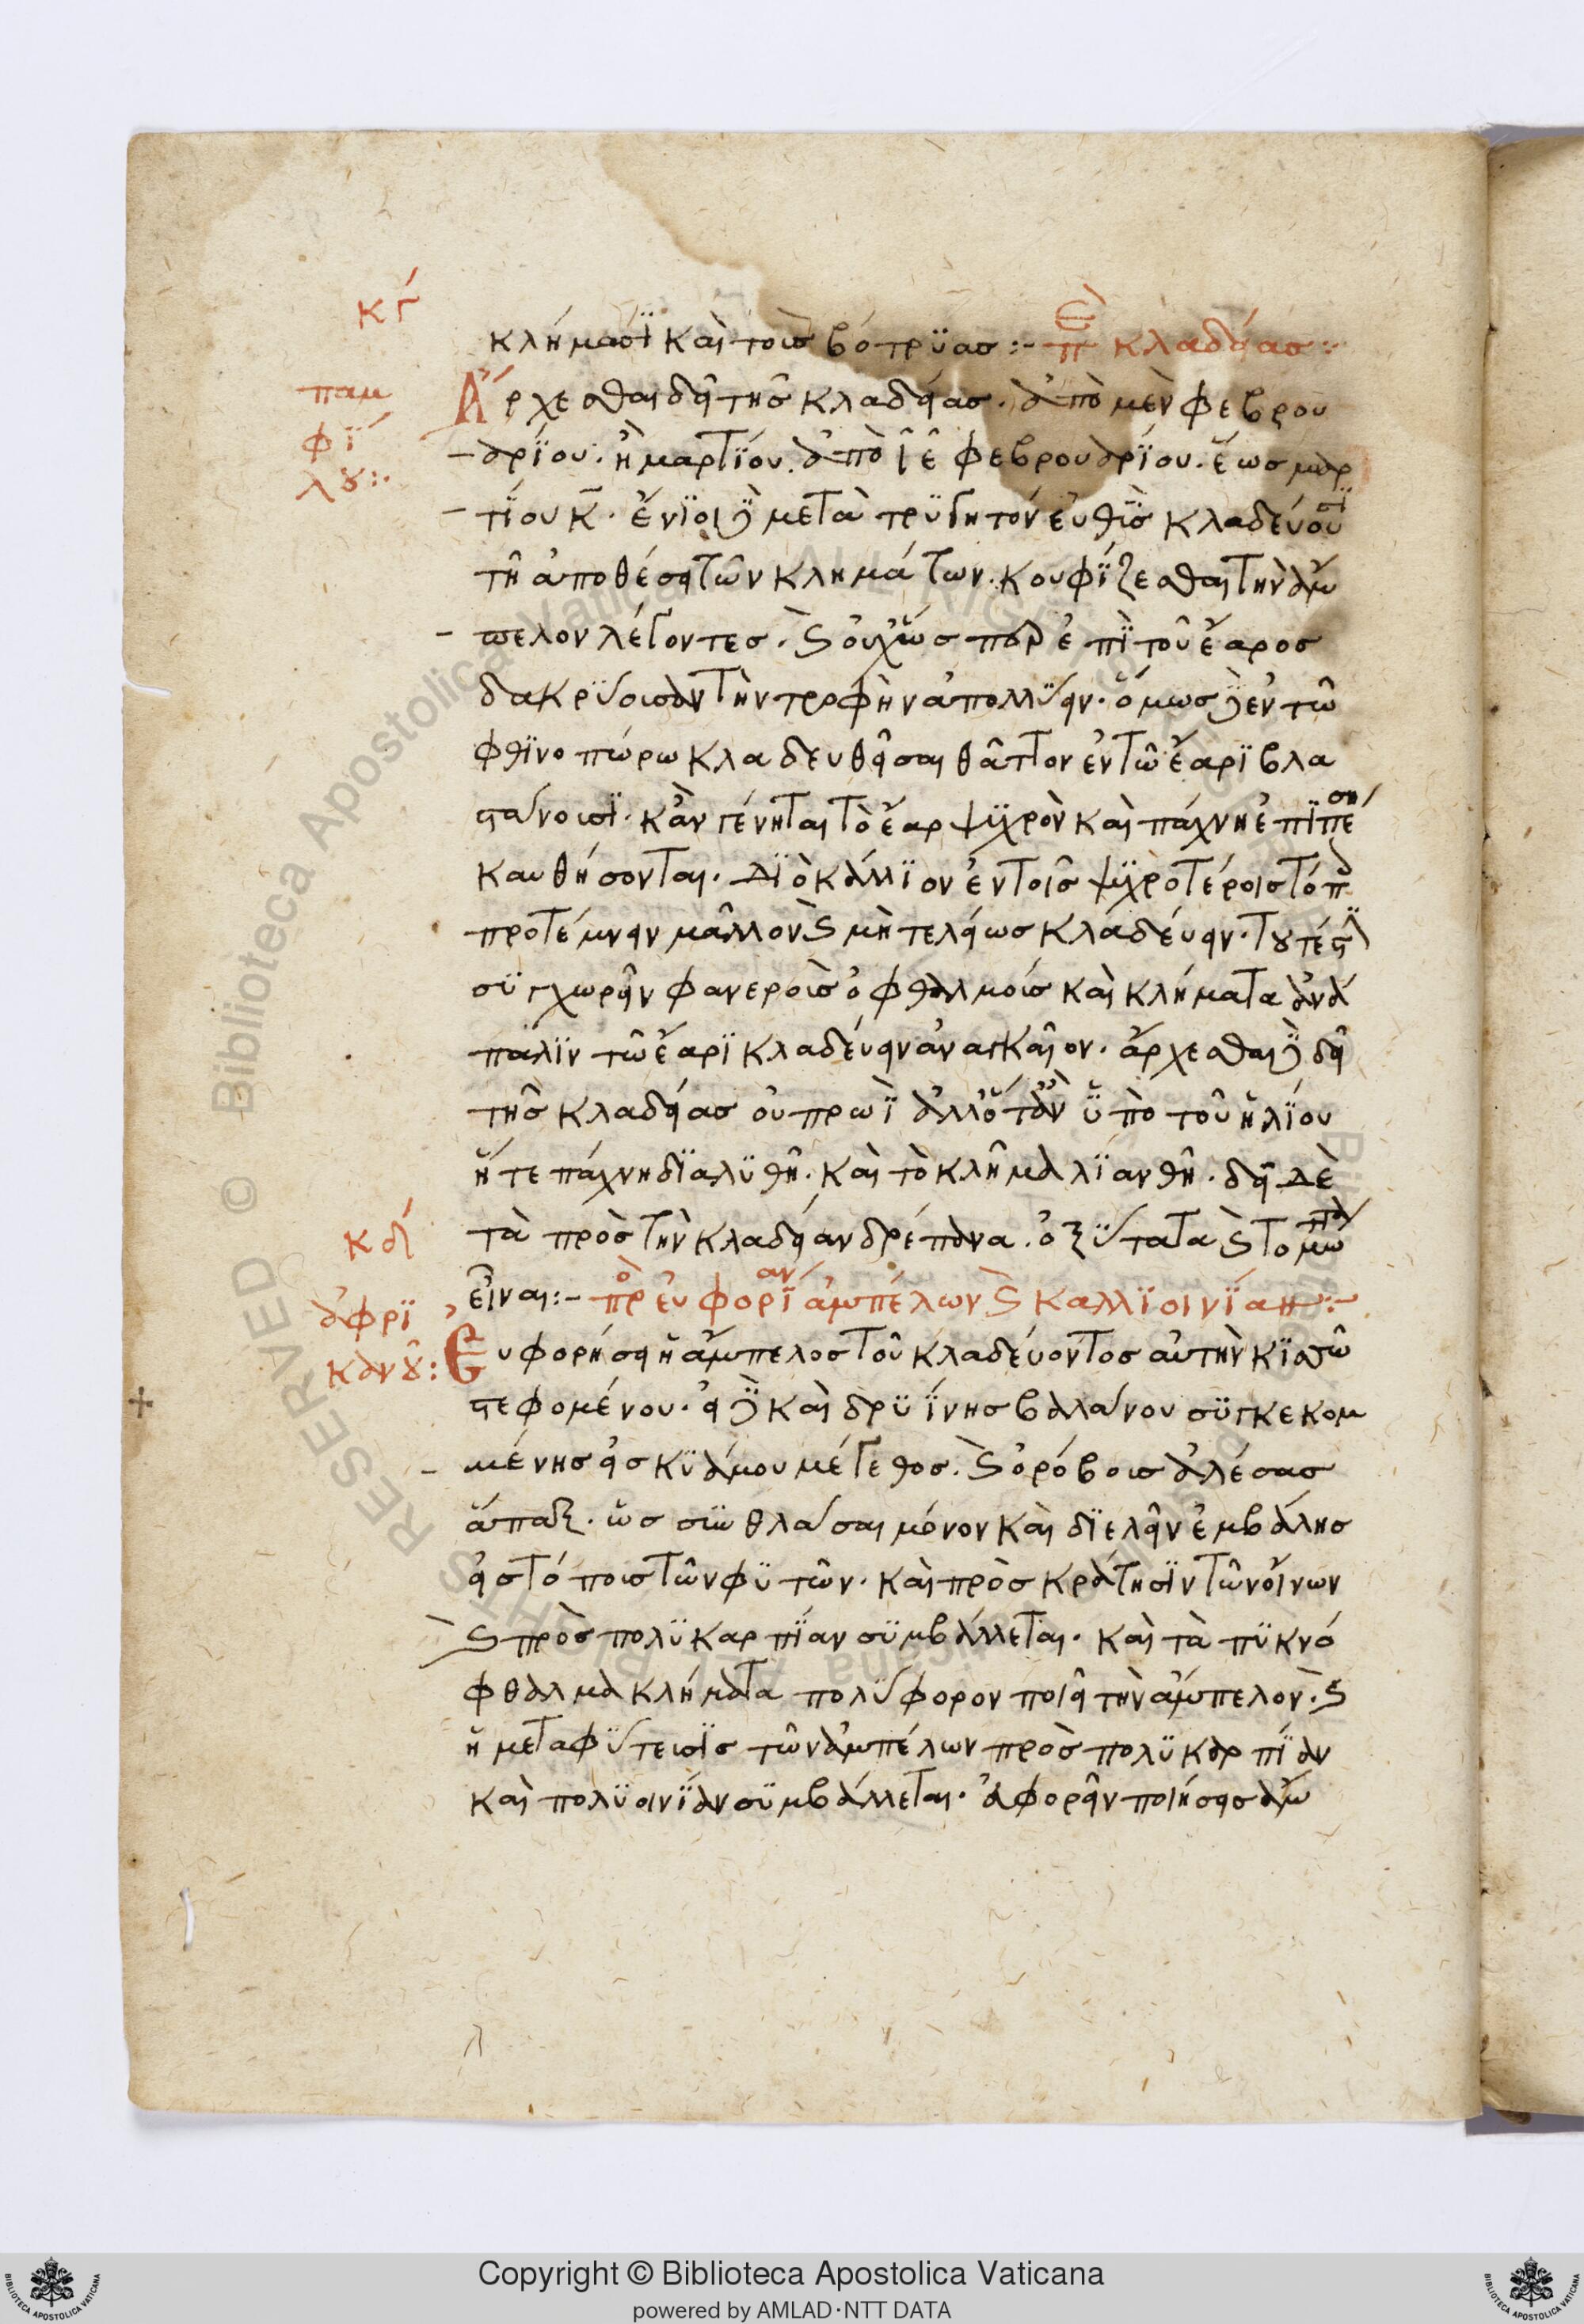 κγ´
κλήμασϊ καὶ τοῖσ βότρϋασ :- πε κλαδείασ :
παμ
φί
λου :.
Ἄρχεσθαι δεῖ τῆσ κλαδείασ. ἀπὸ μὲν φεβρου
αρϊου. ἢ μαρτΐου. ἀπὸ ϊε φεβρουαρΐου. ἕωσ μαρ
τΐου κ. ἔνϊοι δὲ μετὰ τρϋγητὸν εὐθϋσ κλαδεύουσϊ
τῆ ἀποθέσει τῶν κλημάτων. κουφΐζεσθαι τὴν ἄμ
πελον λέγοντεσ. καὶ οὐχ ὥσπερ ἐπὶ τοῦ ἔαροσ
δακρϋουσαν τὴν τροφὴν ἀπολλϋειν. ὅμωσ δὲ ἐν τῶ
φθϊνοπώρω κλαδευθεῖσαι θᾶττον ἐν τῶ ἔαρϊ βλα
στάνουσϊ. κἂν γένηται τὸ ἔαρ ψϋχρὸν καὶ πάχνη ἐπϊπέση
καυθήσονται. δϊὸ κάλλϊον ἐν τοῖσ ψϋχροτέροισ τόποισ
προτέμνειν μᾶλλον καὶ μὴ τελείωσ κλαδεύειν. τουτέστϊ
σϋγχωρεῖν φανεροῖσ ὀφθαλμοῖσ καὶ κλήματα ἀνὰ
πάλϊν τῶ ἔαρϊ κλαδεύειν ἀναγκαῖον. ἄρχεσθαι δὲ δεῖ
τῆσ κλαδείασ οὐ πρωῒ ἀλλ' ὅταν ὑπὸ τοῦ ἡλΐου
ἥ τε πάχνη δϊαλϋθῆ. καὶ τὸ κλῆμα λϊανθῆ. δεῖ δὲ
τὰ πρὸσ τὴν κλαδείαν δρέπανα. ὀξύτατα καὶ τομώτατα
κδ´
εἶναι :- πρὸ εὐφορΐαν ἀμπέλων καὶ καλλϊοινΐαν :-
ἀφρϊ
κανοῦ :
Εὐφορήσει ἡ ἄμπελοσ τοῦ κλαδεύοντοσ αὐτὴν κϊσσῶ
στεφομένου. εἰ δὲ καὶ δρϋΐνησ βαλάνου σϋγκεκομ
μένησ εἰσ κϋάμου μέγεθοσ. καὶ ὀρόβουσ ἀλέσασ
ἅπαξ. ὡσ σϋνθλάσαι μόνον καὶ δϊελεῖν ἐμβάλησ
εἰσ τόπουσ τῶν φϋτῶν. καὶ πρὸσ κράτησϊν τῶν οἴνων
καὶ πρὸσ πολϋκαρπΐαν σϋμβάλλεται. καὶ τὰ πϋκνό
φθαλμα κλήματα πολϋφορον ποιεῖ τὴν ἄμπελον. καὶ
ἡ μεταφϋτευσϊσ τῶν ἀμπέλων πρὸσ πολϋκαρπΐαν
καὶ πολϋοινΐαν σϋμβάλλεται. ἀφορεῖν ποιήσεισ ἄμ
Copyright © Biblioteca Apostolica Vaticana
powered by AMLAD·NTT DATA